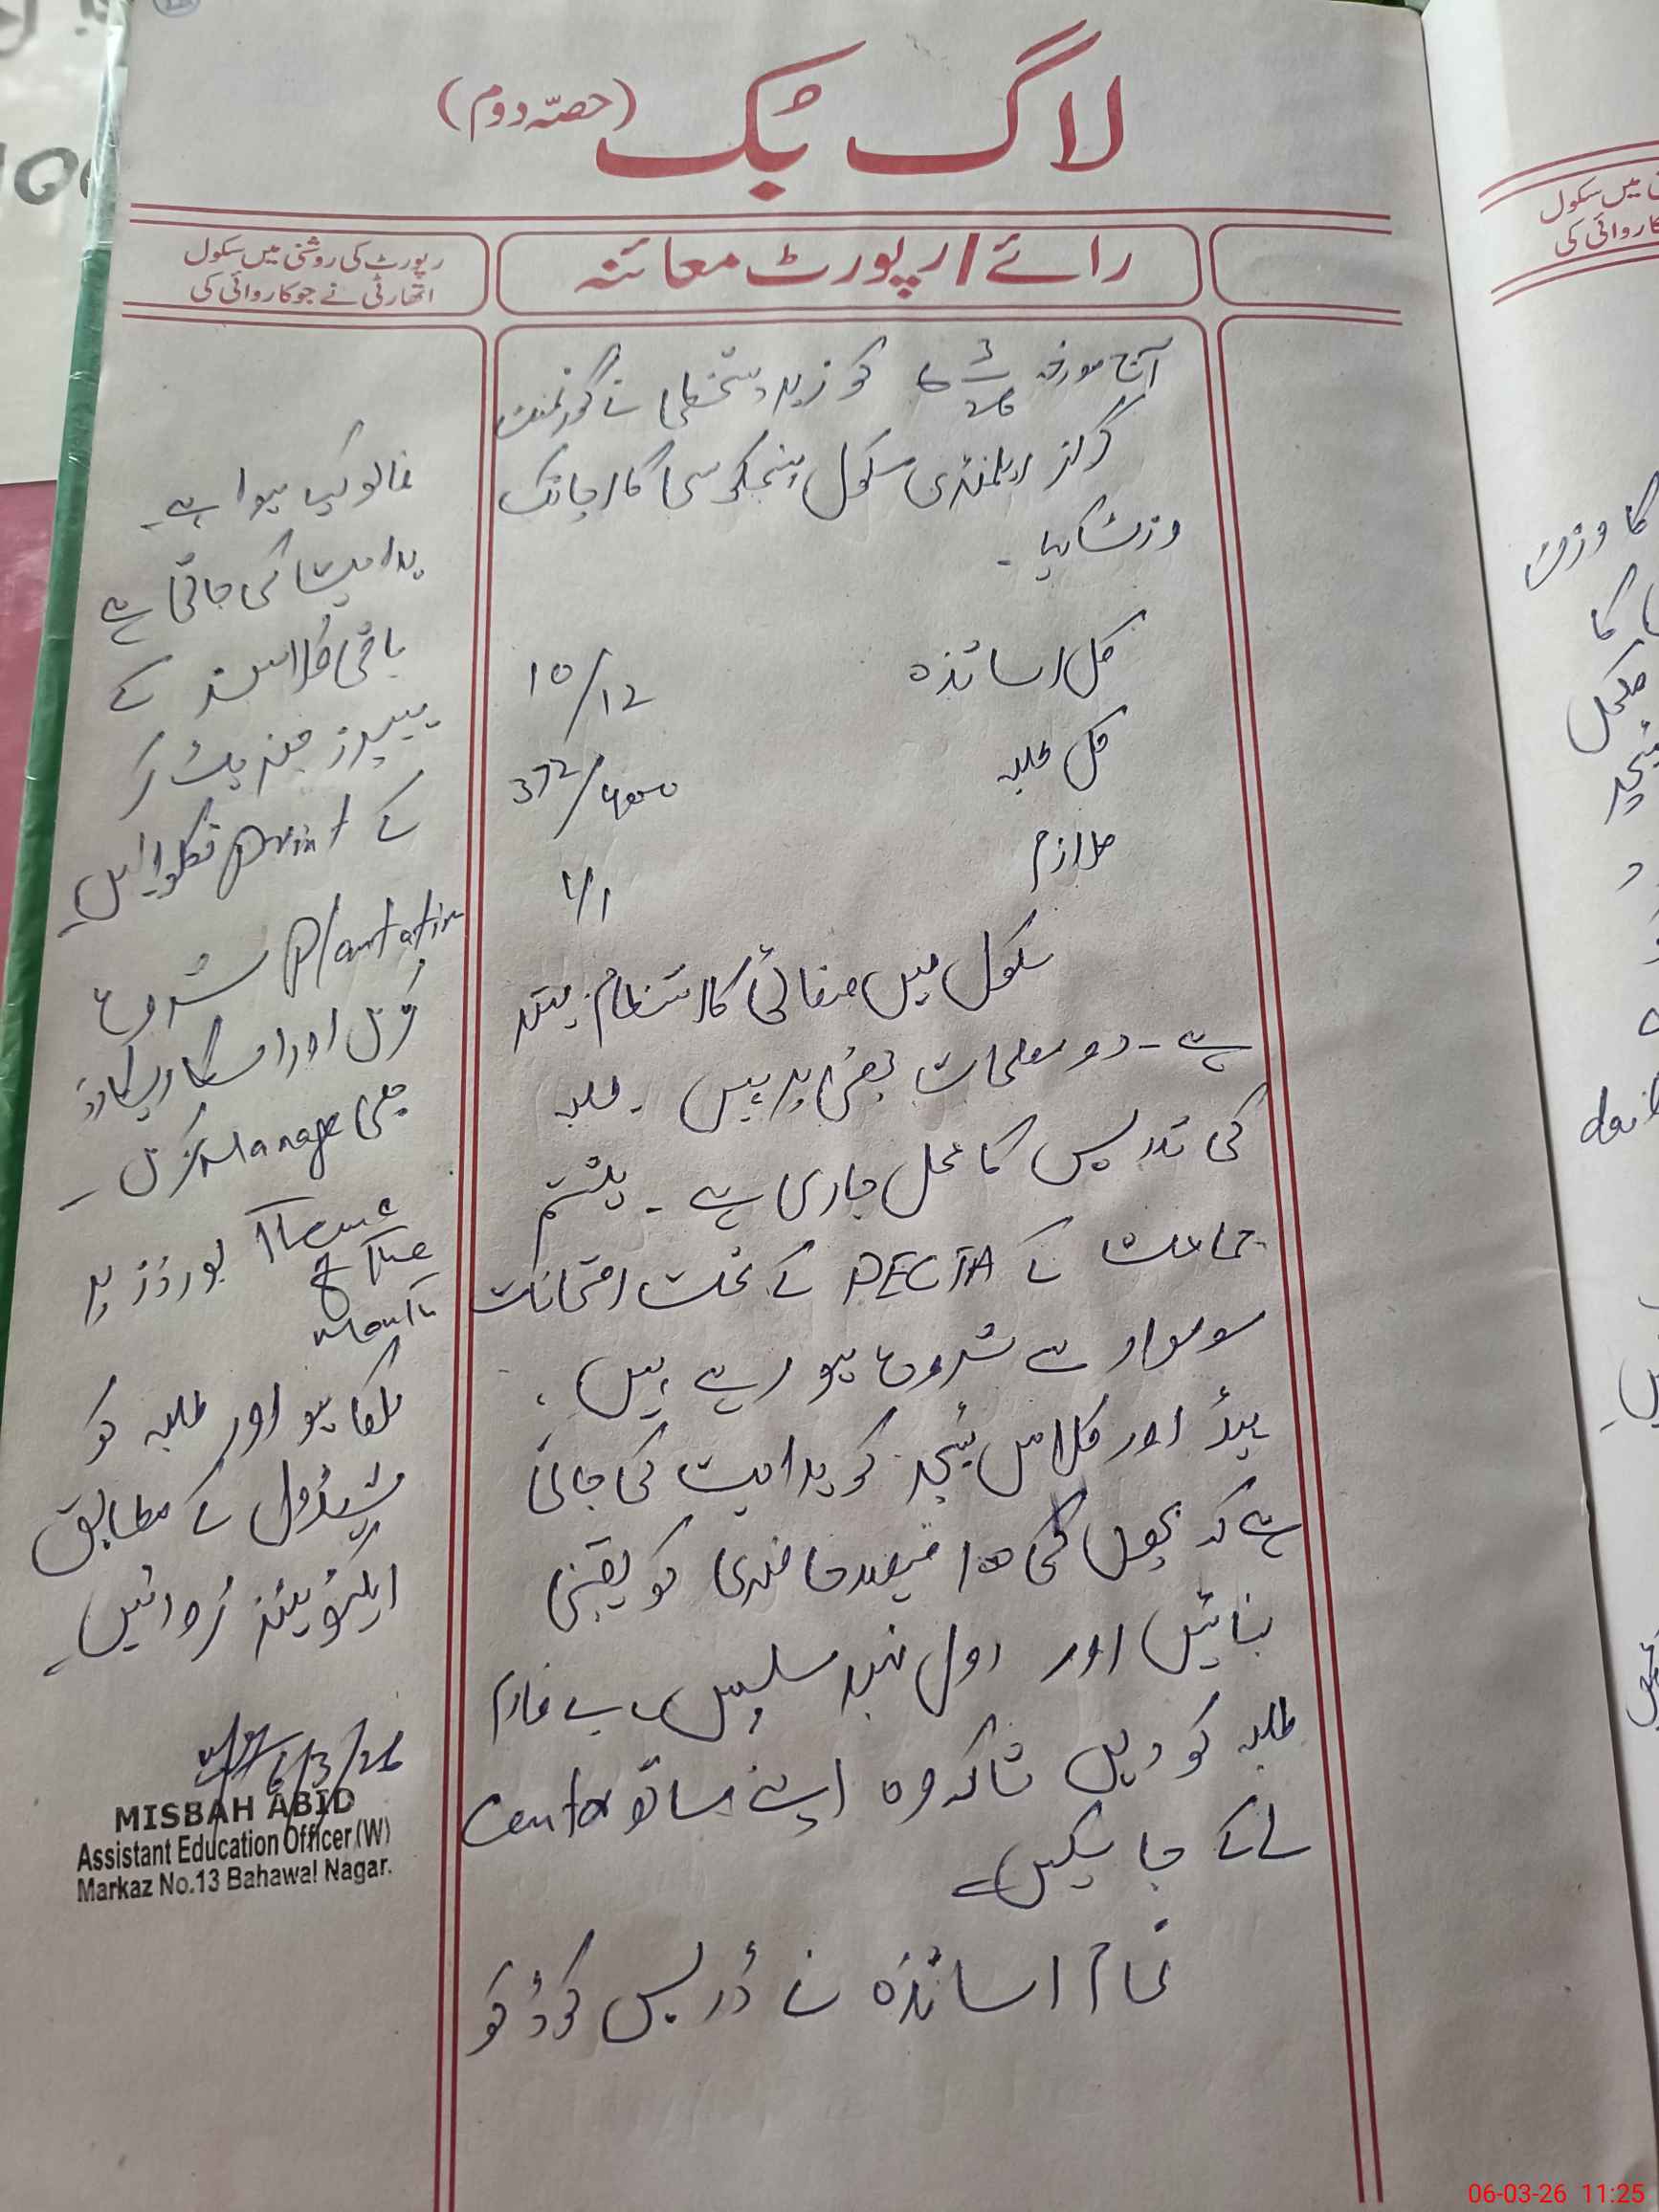 لاگ بک (حصہ دوم)
رائے / رپورٹ معائنہ
رپورٹ کی روشنی میں سکول
اتھارٹی نے جو کاروائی کی
آج مورخہ 6/3/26 کو زیر دستخطی نے گورنمنٹ
گرلز ایلمنٹری سکول کا اچانک
وزٹ کیا ۔
کل اساتذہ 10/12
کل طلبہ 372/400
ملازم 1/1
سکول میں صفائی کا انتظام بہتر
ہے ۔ دو معلمات پر ہیں ۔ طلبہ
کی تدریس کا عمل جاری ہے ۔ ہشتم
جماعت کے PECTA کے تحت امتحانات
سوموار سے شروع ہو رہے ہیں ،
ہیڈ اور کلاس ٹیچر کو ہدایت کی جاتی
ہے کہ بچوں کی 100 فیصد حاضری کو یقینی
بنائیں اور رول نمبر سلپس ، بے فارم
طلبہ کو دیں تاکہ وہ اپنے ساتھ Center
لے کے جا سکیں ۔
تمام اساتذہ نے ڈریس کوڈ کو
فالو کیا ہوا ہے ۔
ہدایت کی جاتی ہے
باقی کلاسز کے
پیپرز کر
کے print نکلوائیں ۔
Plantation شروع
کریں اور اسکا ریکارڈ
بھی Manage کریں ۔
بورڈز پر Theme
of The
Month
لکھا ہو اور طلبہ کو
شیڈول کے مطابق
ایکٹویٹیز کروائیں ۔
6/3/26
MISBAH ABID
Assistant Education Officer (W)
Markaz No.13 Bahawal Nagar.
میں سکول
کاروائی کی
کا وزٹ
کا
مکمل
06-03-26 11:25